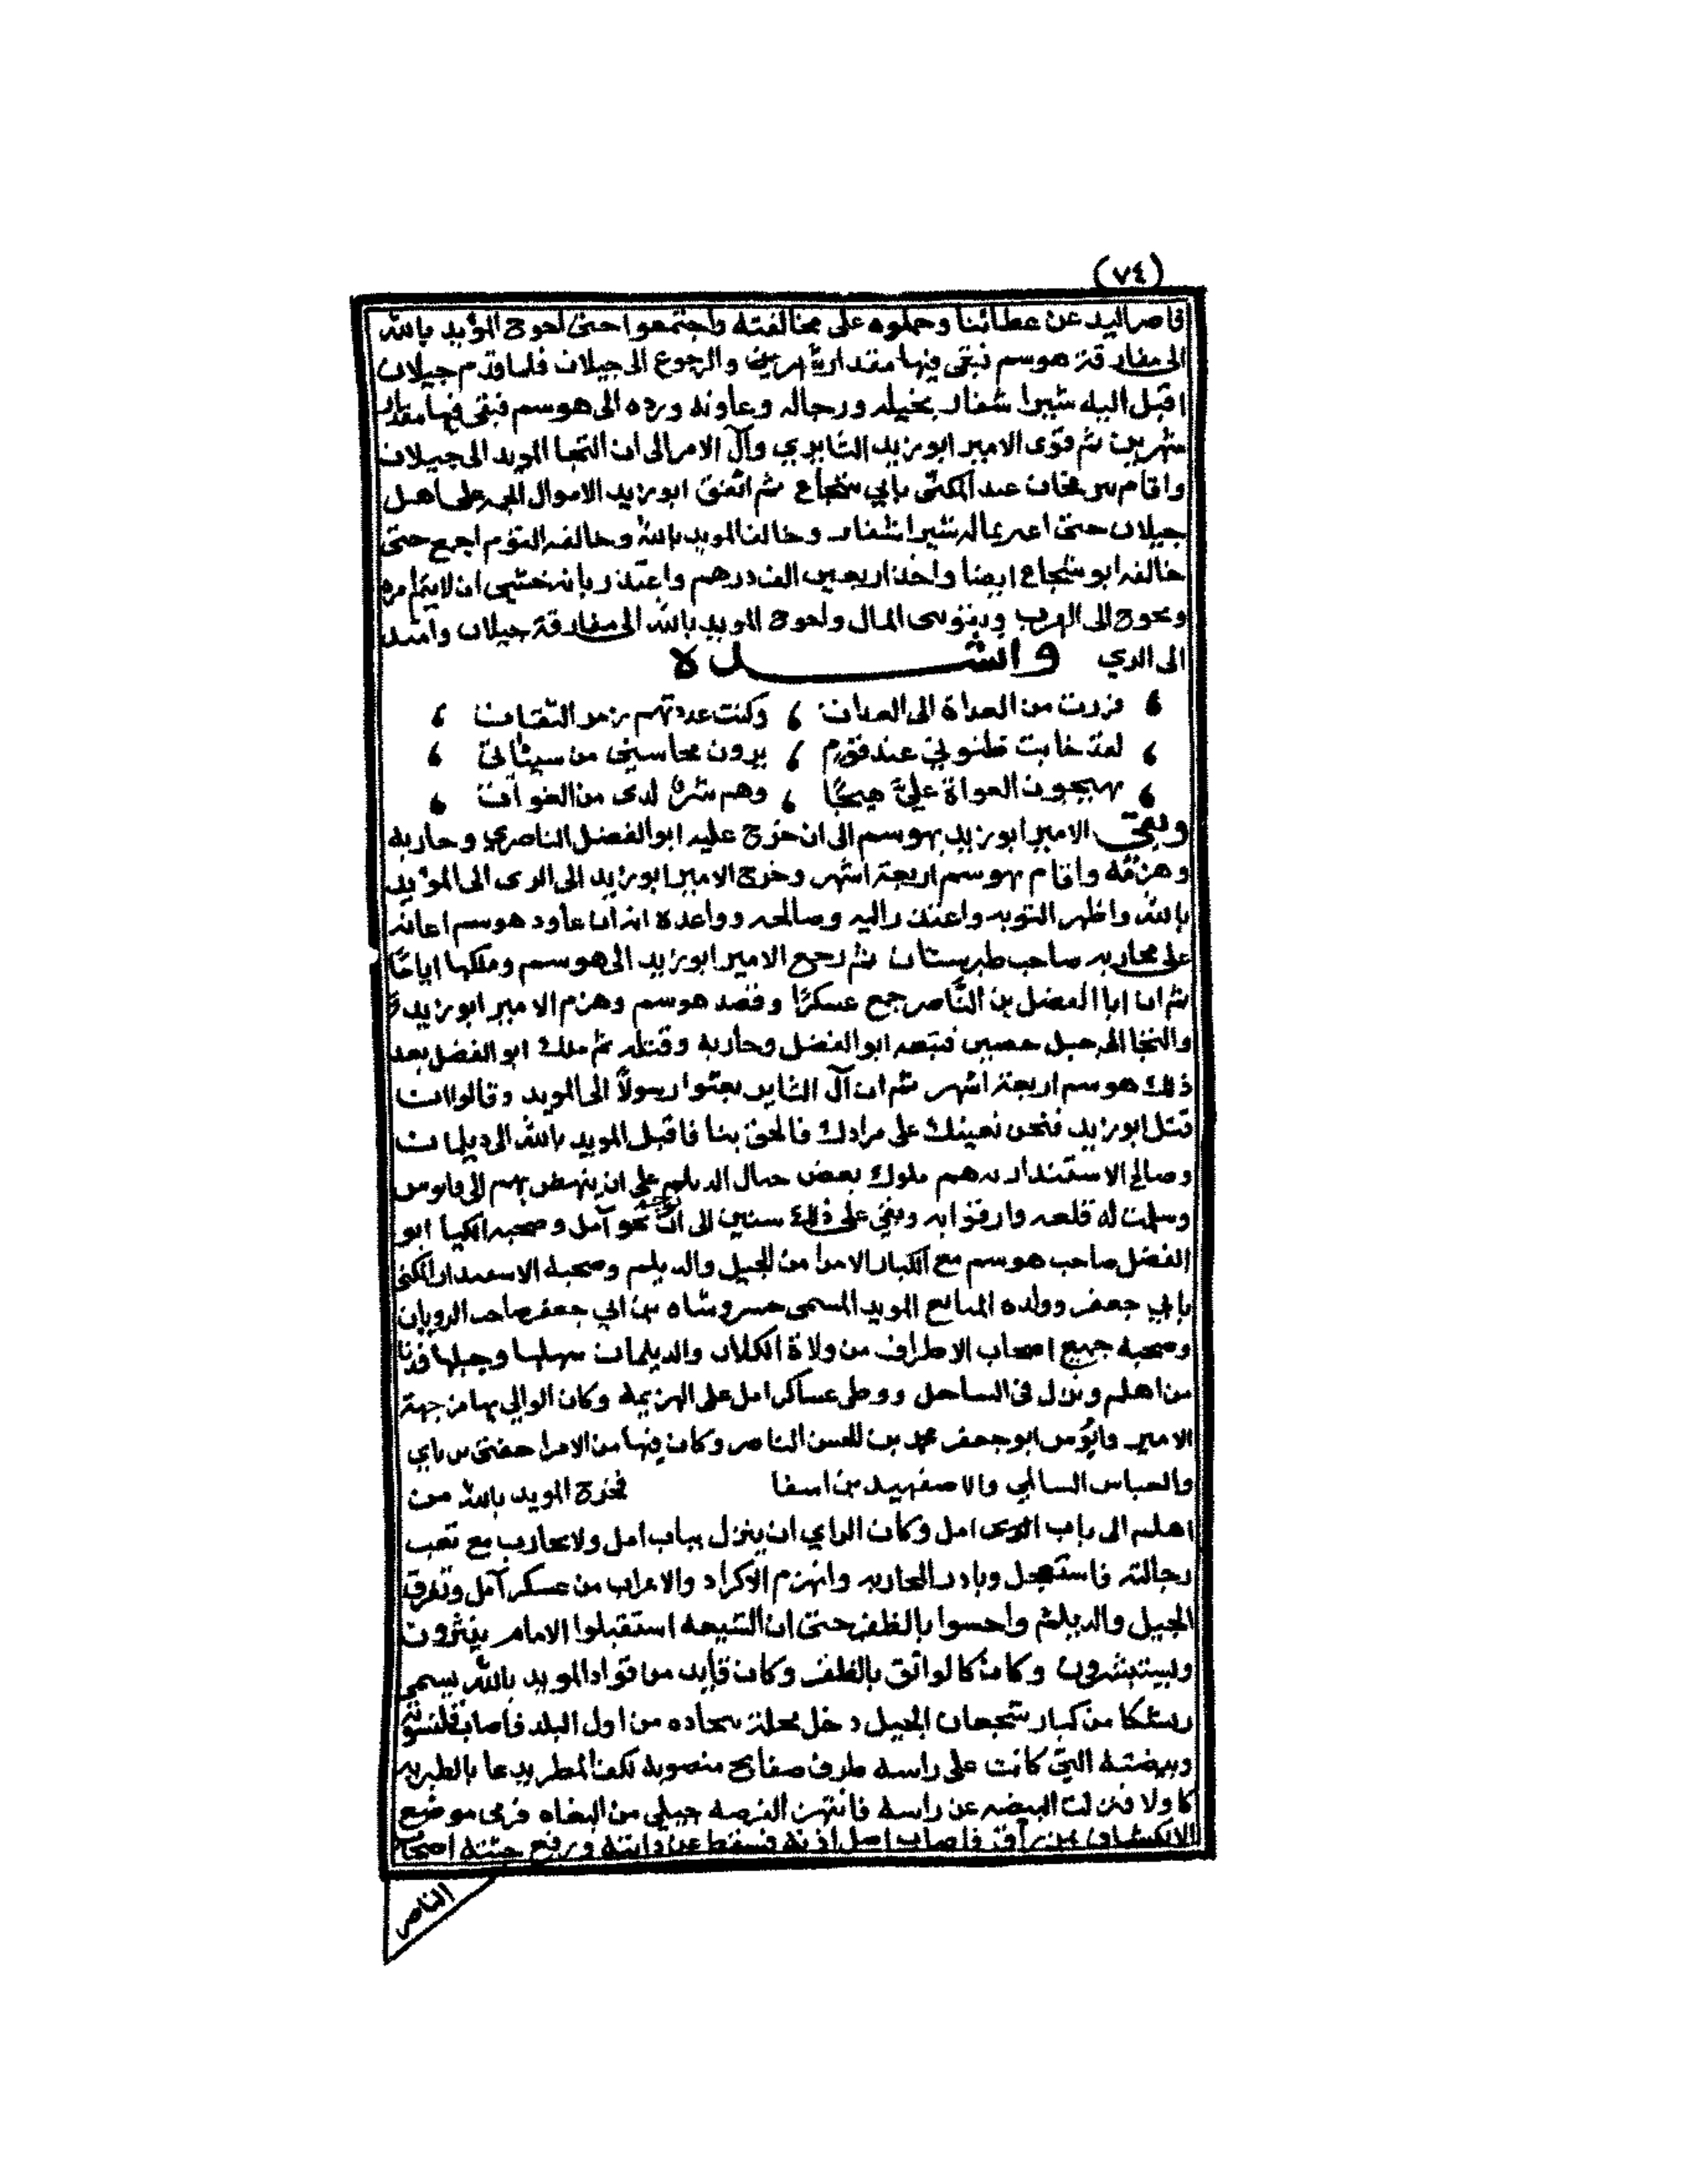 (٧٤)
قاصر اليد عن عطائنا وحملوه على مخالفته واجتمعوا حتى احوج المؤيد بالله
الى مفارقة هوسم فبقى فيها مقدار والرجوع الى جيلان فلما قدم جيلان
اقبل اليه شيرا شفار بخيله ورجاله وعاونه ورده الى هوسم فبقى فيها مقدار
شهرين ثم قوى الامير ابو زيد الثايري وآل الامر الى ان التجا المويد الى جيلان
واقام عند المكنّى بابي شجاع ثم انفق ابو زيد الاموال الجمه على اهل
جيلان حتى بماله شيرا شفار وخالف المويد بالله وخالفه القوم اجمع حتى
خالفه ابو شجاع ايضا واخذ اربعين الف درهم واعتذر بانه خشي ان لا يتم امره
ويحوج الى الهرب وينوى المال واحوج المويد بالله الى مفارقة جيلان وامتد
الى الري وانشده
فررت من العداة الى العدات ، وكنت عددتهم زمر الثقات
لقد خابت ظنوني عند قوم ، يرون محاسني من سيئاتي
يهيجون الغواة عليّ هيجًا ، وهم شرٌ لدى من الغوات
وبقي الامير ابو زيد بهوسم الى ان خرج عليه ابو الفضل الناصري وحاربه
وهزمه واقام بهوسم اربعة اشهر وخرج الامير ابو زيد الى الرى الى المؤيد
بالله واظهر التوبه واعتذر اليه وصالحه وواعده انه ان عاود هوسم اعانه
على محاربه صاحب طبرستان ثم رجع الامير ابو زيد الى هوسم وملكها اياما
ثم ان ابا الفضل بن النّاصر جمع عسكرًا وقصد هوسم وهزم الامير ابو زيد
والتجا الى جبل فتبعه ابو الفضل وحاربه وقتله ثم ملك ابو الفضل بعد
ذلك هوسم اربعة اشهر ثم ان آل الثاير بعثوا رسولًا الى المويد وقالوا ان
قتل ابو زيد فنحن نعينك على مرادك فالحق بنا فاقبل المويد بالله الى ديلمان
وصالح الاستندار به هم ملوك بعض جبال الديلم على ان ينهض بهم الى قابوس
وسلمت له قلعه وارفق ابه وبقي على ذلك سنين الى ان نحو آمل وصحبه الكيا ابو
الفضل صاحب هوسم مع الكبار الامرا من الجيل والديلم وصحبه الاستندار المكنى
بابي جعفر وولده المبايع المويد المسمى خسرو شاه بن ابي جعفر صاحب الرويان
وصحبه جميع اصحاب الاطراف من ولاة الكلار والديلمان سهلها وجبلها
من اهلم ونزل في الساحل ووطى عساكر امل على الهزيمه وكان الوالي بها من جهة
الامير قابوس ابو جعفر محمد بن الحسن الناصر وكان فيها من الامرا
والعباس السالمي والاصفهيد بن اسفا فخرج المويد بالله من
اهلم الى باب امل وكان الراي ان ينزل بباب امل ولا يحارب مع تعب
رجالته فاستعجل وبادر المحاربه وانهزم الاكراد والاعراب من عسكر آمل وتفرق
الجيل والديلم واحسوا بالظفر حتى ان الشيعه استقبلوا الامام ينثرون
ويستبشرون وكان كالواثق بالظفر وكان قايد من قواد المويد بالله يسمى
من كبار شجعان الجيل دخل محلة من اول البلد فاصاب قلنسوته
وبيضته التي كانت على راسه طرف صفايح منصوبه لكف المطر
فزلت البيضه عن راسه فانتهز الفرصه جيلي من البغاه فرمى موضع
الانكشاف فاصاب اصل اذنه فسقط عن دابته ورفع جثته اصحاب
الناصر